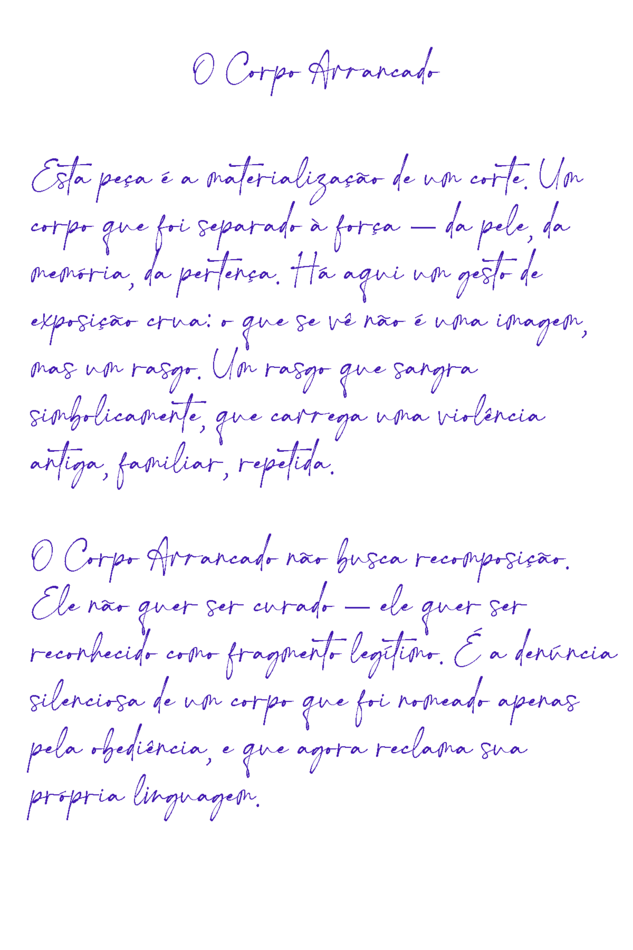 O Corpo Arrancado
Esta peça é a materialização de um corte. Um
corpo que foi separado à força — da pele, da
memória, da pertença. Há aqui um gesto de
exposição crua: o que se vê não é uma imagem,
mas um rasgo. Um rasgo que sangra
simbolicamente, que carrega uma violência
antiga, familiar, repetida.
O Corpo Arrancado não busca recomposição.
Ele não quer ser curado — ele quer ser
reconhecido como fragmento legítimo. É a denúncia
silenciosa de um corpo que foi nomeado apenas
pela obediência, e que agora reclama sua
própria linguagem.